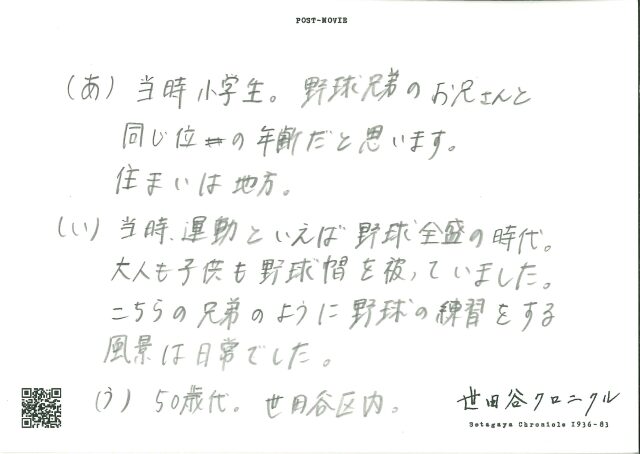 POST-MOVIE
(あ) 当時小学生。野球兄弟のお兄さんと
同じ位の年齢だと思います。
住まいは地方。
(い) 当時、運動といえば野球全盛の時代。
大人も子供も野球帽を被っていました。
こちらの兄弟のように野球の練習をする
風景は日常でした。
(う) 50歳代。世田谷区内。
世田谷クロニクル
Setagaya Chronicle 1936-83